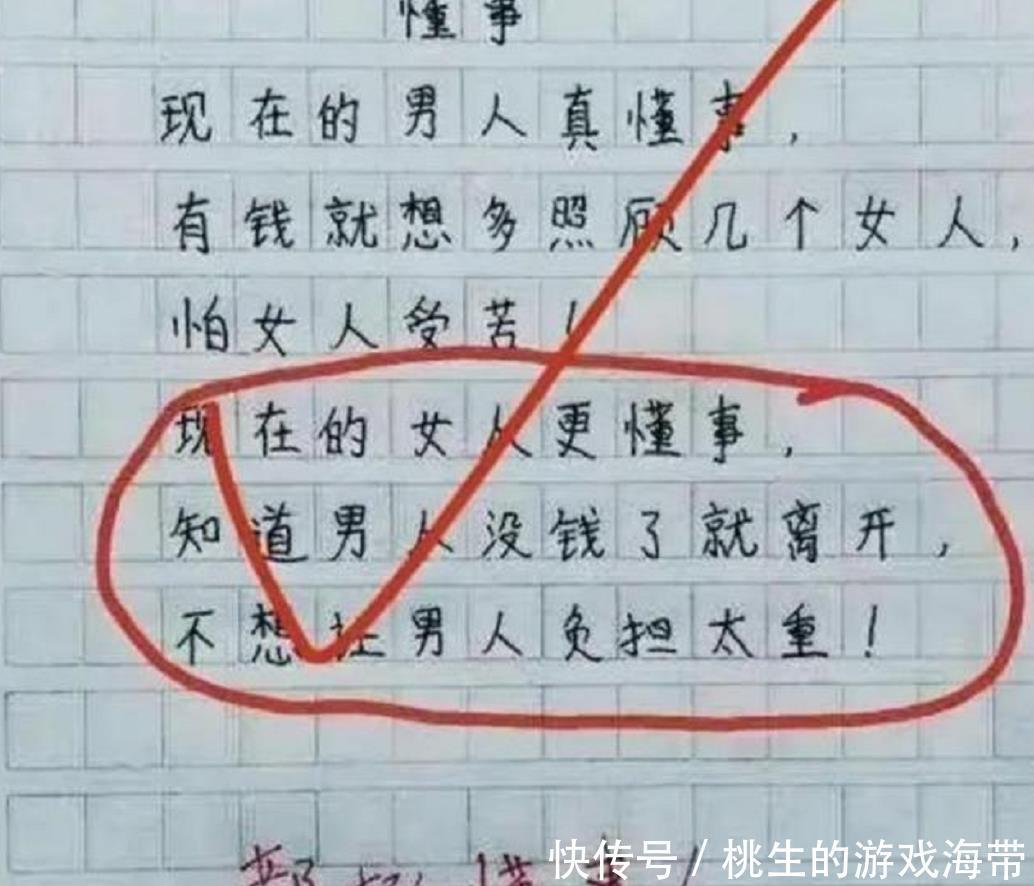 懂事
现在的男人真懂事，
有钱就想多照顾几个女人，
怕女人受苦！
现在的女人更懂事，
知道男人没钱了就离开，
不想让男人负担太重！
快传号/桃生的游戏海带